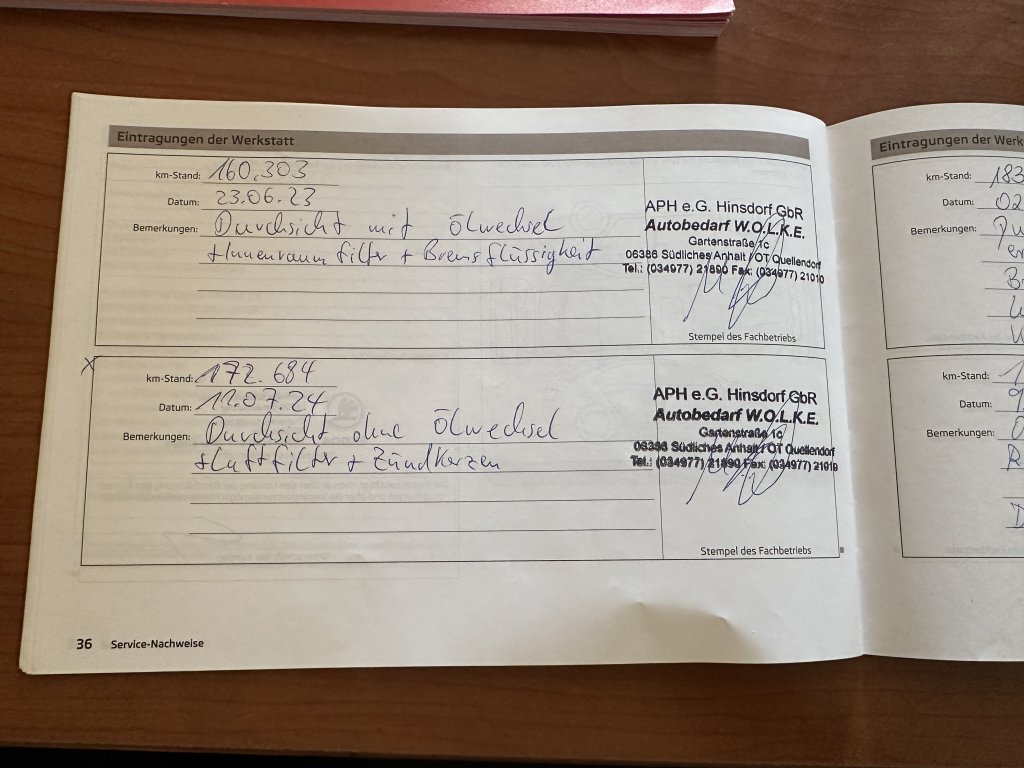 Eintragungen der Werkstatt
km-Stand: 160.303
Datum: 23.06.23
Bemerkungen: Durchsicht mit Ölwechsel
+Innenraumfilter + Bremsflüssigkeit
APH e.G. Hinsdorf GbR
Autobedarf W.O.L.K.E.
Gartenstraße 1c
06386 Südliches Anhalt / OT Quellendorf
Tel.: (034977) 21890 Fax: (034977) 21010
Stempel des Fachbetriebs
X
km-Stand: 172.684
Datum: 11.07.24
Bemerkungen: Durchsicht ohne Ölwechsel
+Luftfilter + Zündkerzen
APH e.G. Hinsdorf GbR
Autobedarf W.O.L.K.E.
Gartenstraße 1c
06386 Südliches Anhalt / OT Quellendorf
Tel.: (034977) 21890 Fax: (034977) 21010
Stempel des Fachbetriebs
36 Service-Nachweise
Eintragungen der Werk
km-Stand: 183
Datum: 02
Bemerkungen:
km-Stand: 1
Datum:
Bemerkungen: